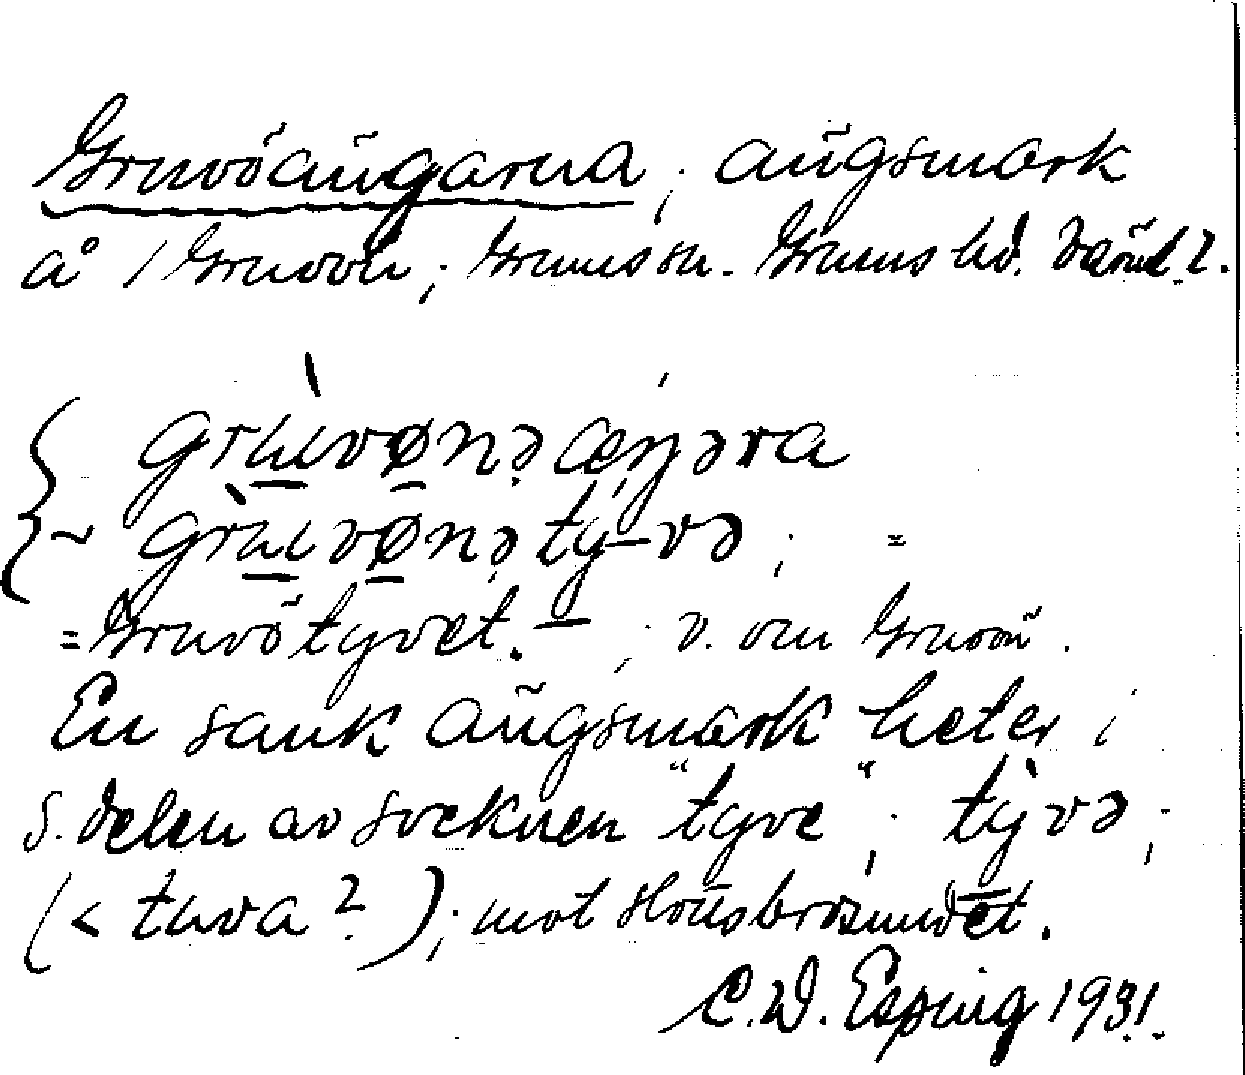 Gruvöängarna; ängsmark
å / Gruvön; Grums sn. Grums hd. Värml.
grùvønəæŋəra
~ grùvønətývə; =
= Gruvötyvet.–; v. om Gruvön.
En sank ängsmark heter i
s. delen av socknen "tyve"; tỳvə;
(< tuva?); mot Slottsbrosundet.
C.W. Esping 1931.